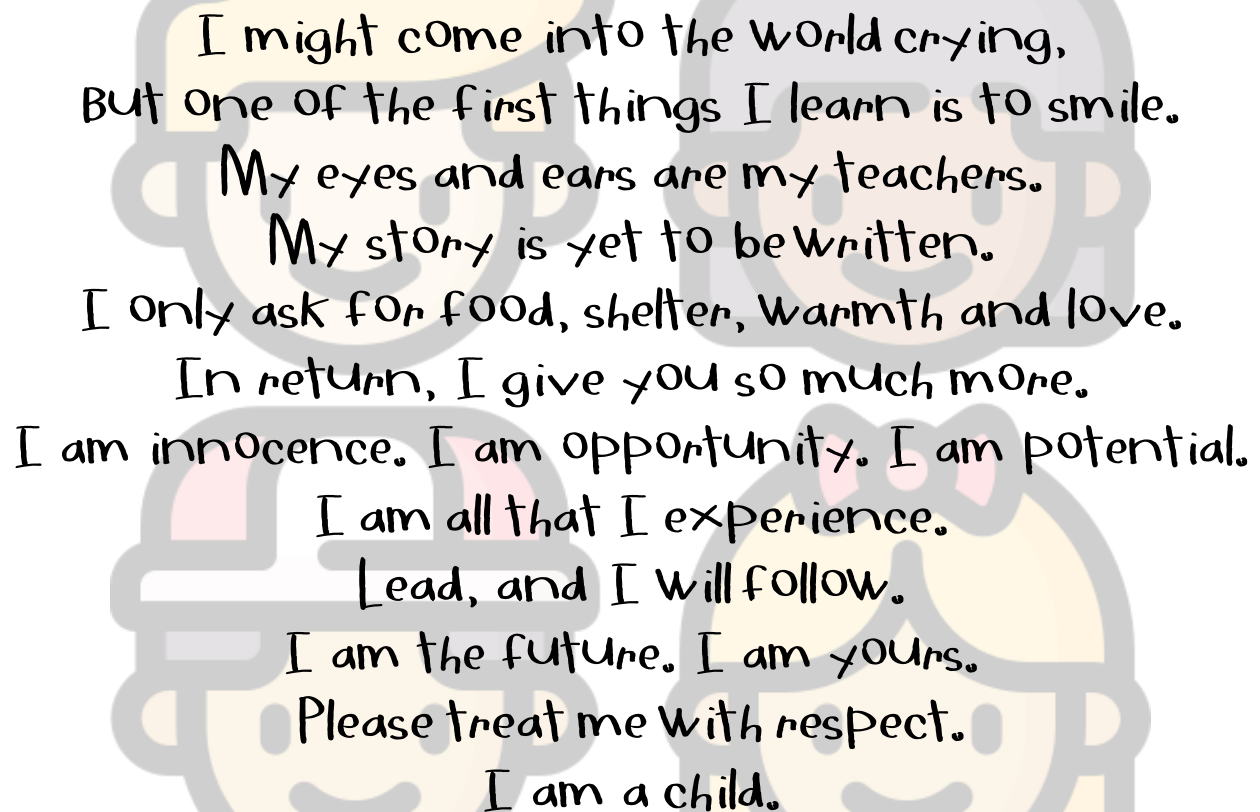 I might come into the world crying,
But one of the first things I learn is to smile.
My eyes and ears are my teachers.
My story is yet to be written.
I only ask for food, shelter, warmth and love.
In return, I give you so much more.
I am innocence. I am opportunity. I am potential.
I am all that I experience.
Lead, and I will follow.
I am the future. I am yours.
Please treat me with respect.
I am a child.